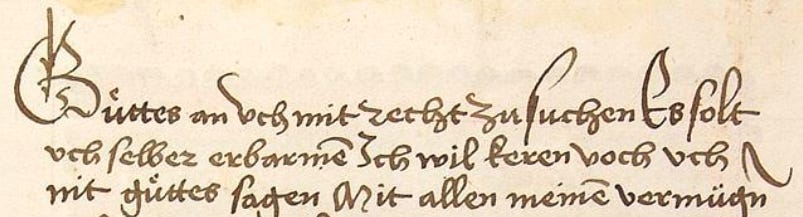 Gůttes an vch mit recht zu suchen Es solt
vch selber erbarmē Ich wil keren voch vch
nit gůttes sagen Mit allen meinē vermügn